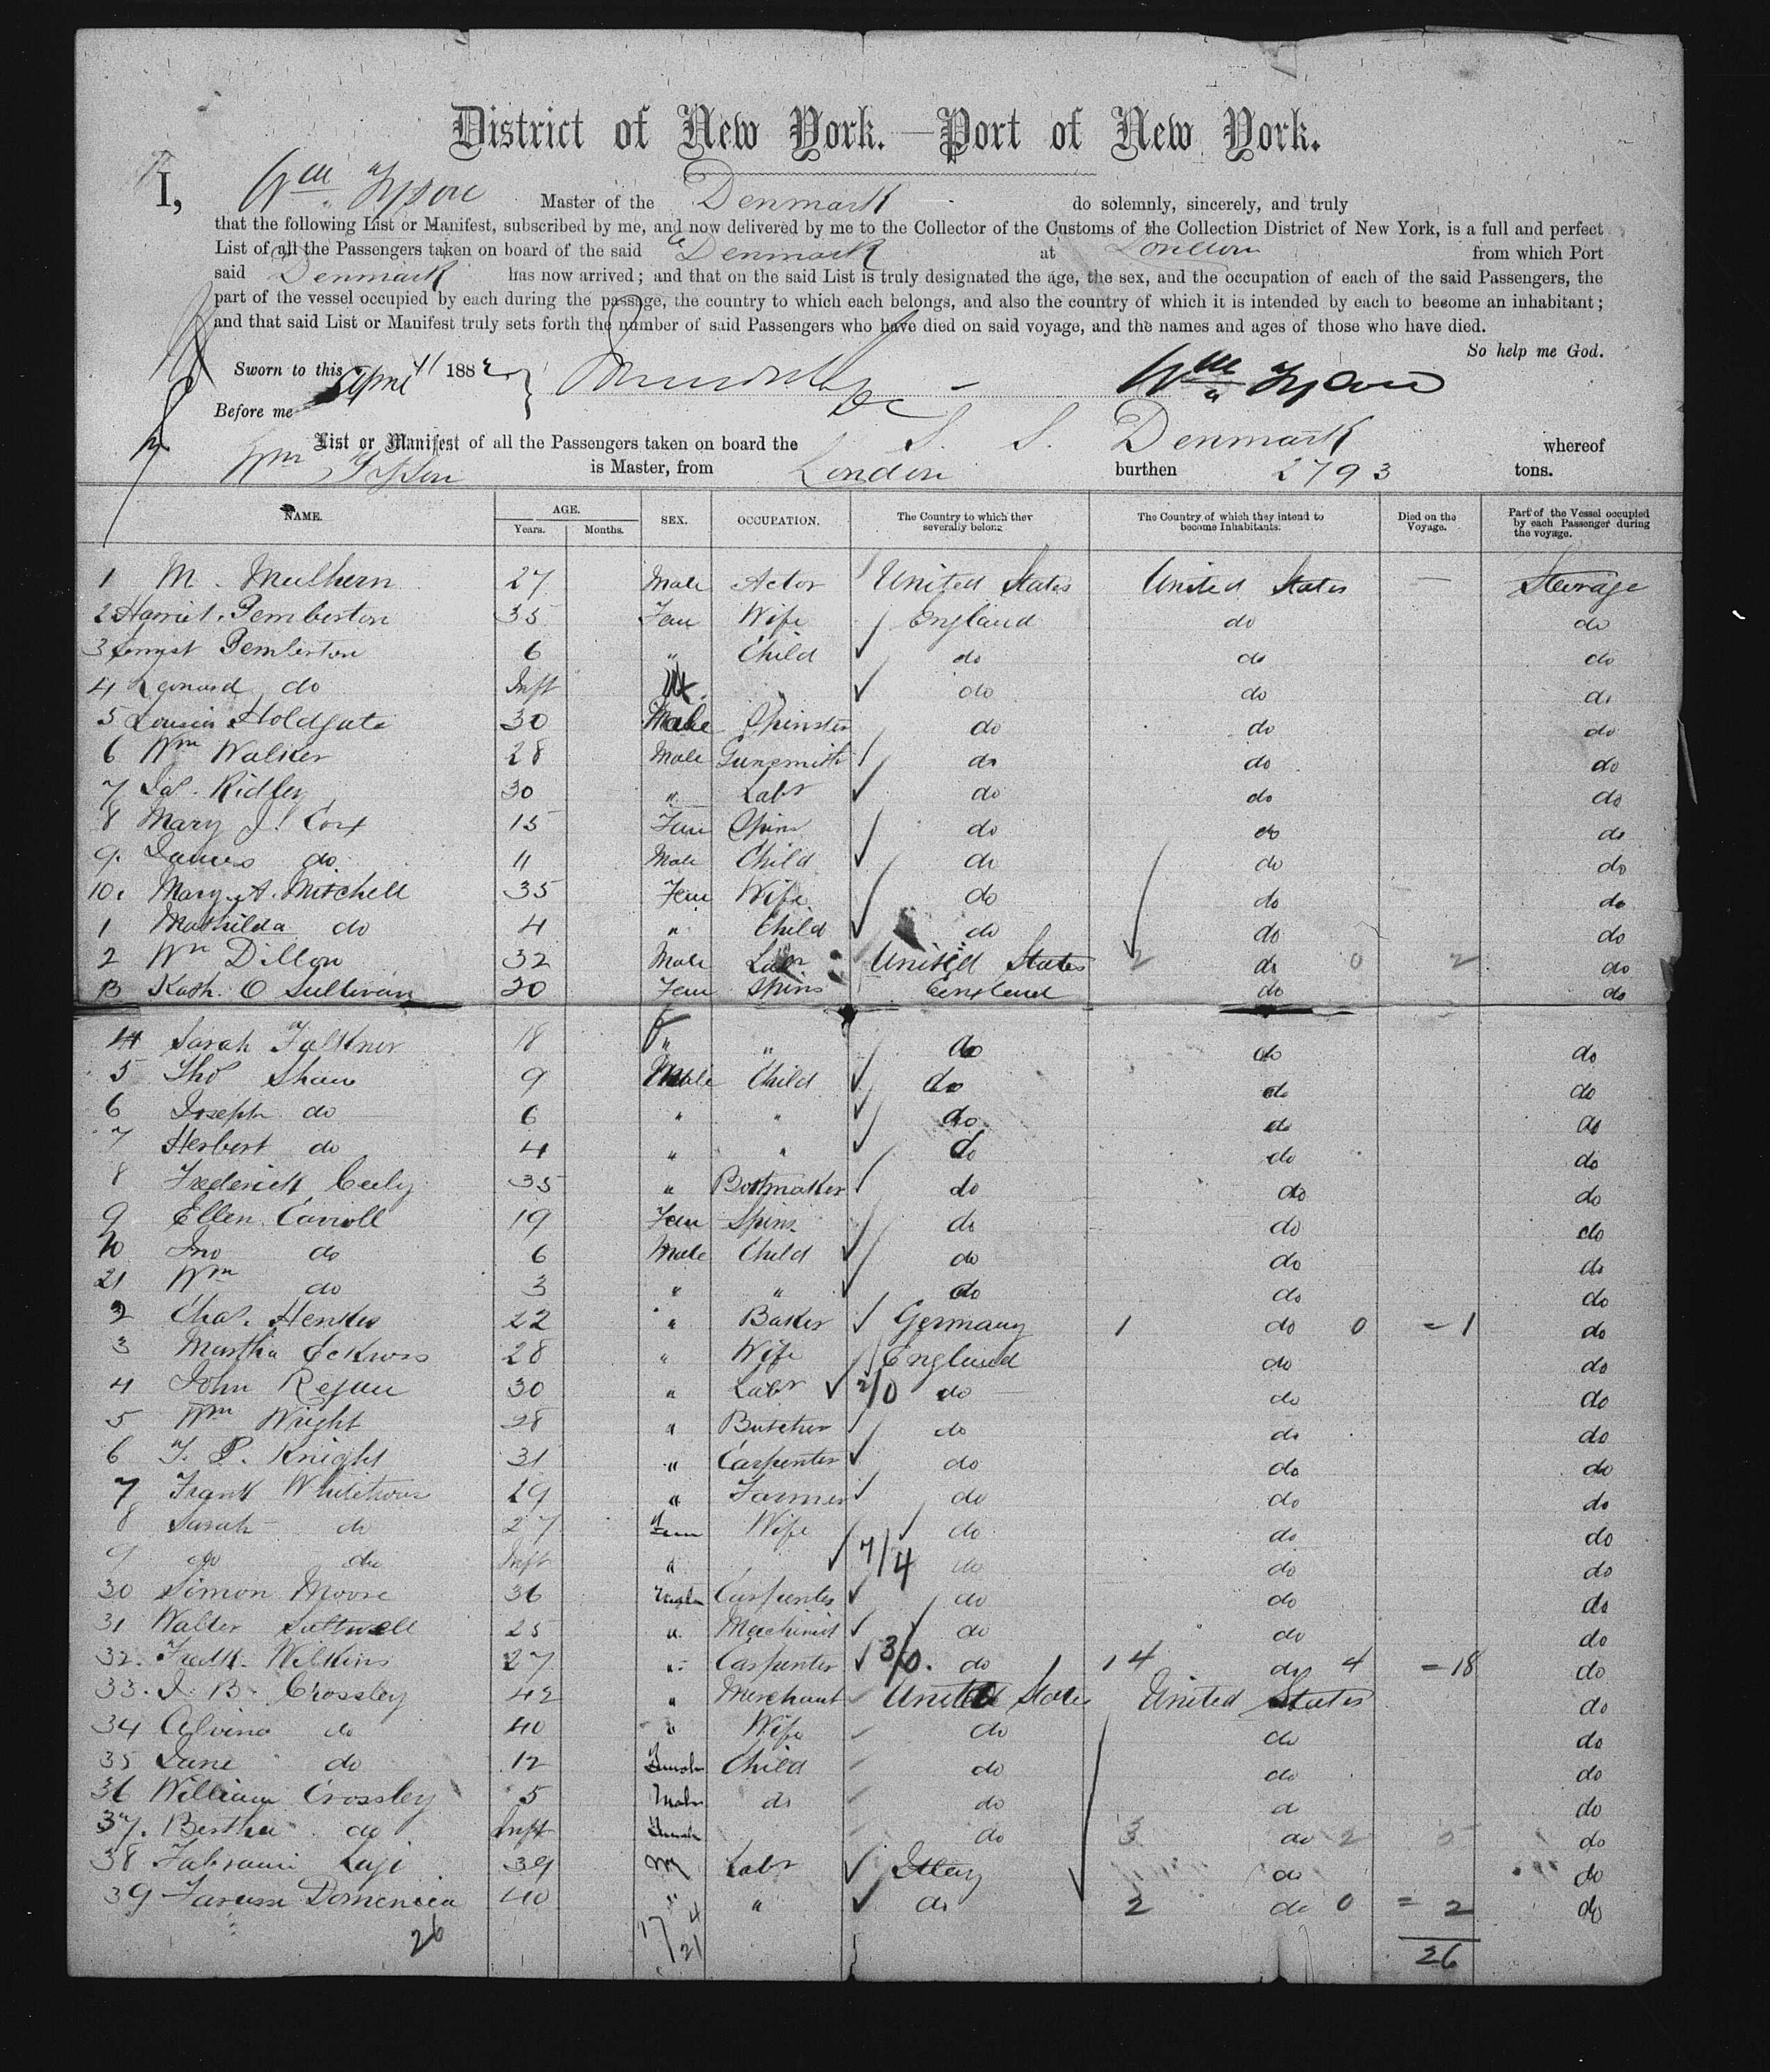 District of New York.—Port of New York.
I, Wm Tyson Master of the Denmark do solemnly, sincerely, and truly
that the following List or Manifest, subscribed by me, and now delivered by me to the Collector of the Customs of the Collection District of New York, is a full and perfect
List of all the Passengers taken on board of the said Denmark at London from which Port
said Denmark has now arrived; and that on the said List is truly designated the age, the sex, and the occupation of each of the said Passengers, the
part of the vessel occupied by each during the passage, the country to which each belongs, and also the country of which it is intended by each to become an inhabitant;
and that said List or Manifest truly sets forth the number of said Passengers who have died on said voyage, and the names and ages of those who have died.
So help me God.
Sworn to this 11 1882 Wm Tyson
Before me
List or Manifest of all the Passengers taken on board the S. S. Denmark whereof
Wm Tyson is Master, from London burthen 2793 tons.
NAME. AGE. Years. Months. SEX. OCCUPATION. The Country to which they severally belong. The Country of which they intend to become Inhabitants. Died on the Voyage. Part of the Vessel occupied by each Passenger during the voyage.
1 M. Mulhern 27 Male Actor United States United States — Steerage
2 Harriet Pemberton 35 Fem Wife England do do
3 Pemberton 6 " Child do do do
4 Leonard do Inft do do do
5 Louisa Holdgate 30 Spinster do do do
6 Wm Walker 28 Male Gunsmith do do do
7 Jas. Ridley 30 " Labr do do do
8 Mary J. Cox 15 Fem Spins do do do
9. James do 11 Male Child do do do
10. Mary A. Mitchell 35 Fem Wife do do do
1 Mathilda do 4 " Child do do do
2 Wm Dillon 32 Male Labr United States 2 do 0 2 do
13 Kath. O Sullivan 20 Fem Spins England do do
14 Sarah Falkner 18 " " do do do
5 Thos Shaw 9 Male Child do do do
6 Joseph do 6 " " do do do
7 Herbert do 4 " " do do do
8 Frederick Ceely 35 " Bootmaker do do do
9 Ellen Carroll 19 Fem Spins. do do do
20 Jno do 6 Male Child do do do
21 Wm do 3 " " do do do
2 Chas. Henkes 22 " Baker Germany 1 do 0 = 1 do
3 Martha 28 " Wife England do do
4 John Regan 30 " Labr 2/0 do do do
5 Wm Wright 28 " Butcher do do do
6 T. P. Knight 31 " Carpenter do do do
7 Frank 29 " Farmer do do do
8 Sarah do 27 Fem Wife do do do
9 do do Inft " 7/4 do do do
30 Simon Moore 36 Carpenter do do do
31 Walter 25 " Machinist do do do
32. Fredk. Wilkins 27 " Carpenter 3/0. do 14 do 4 = 18 do
33. J. B. Crossley 42 " Merchant United States United States do
34 Alvina do 40 " Wife do do do
35 Jane do 12 Female Child do do do
36 William Crossley 5 Male do do do do
37. Bertha do Inft Female do 3 do 2 5 do
38 39 M Labr Italy do do
39 Domenica 40 " " do 2 do 0 = 2 do
26 17/4 21 26